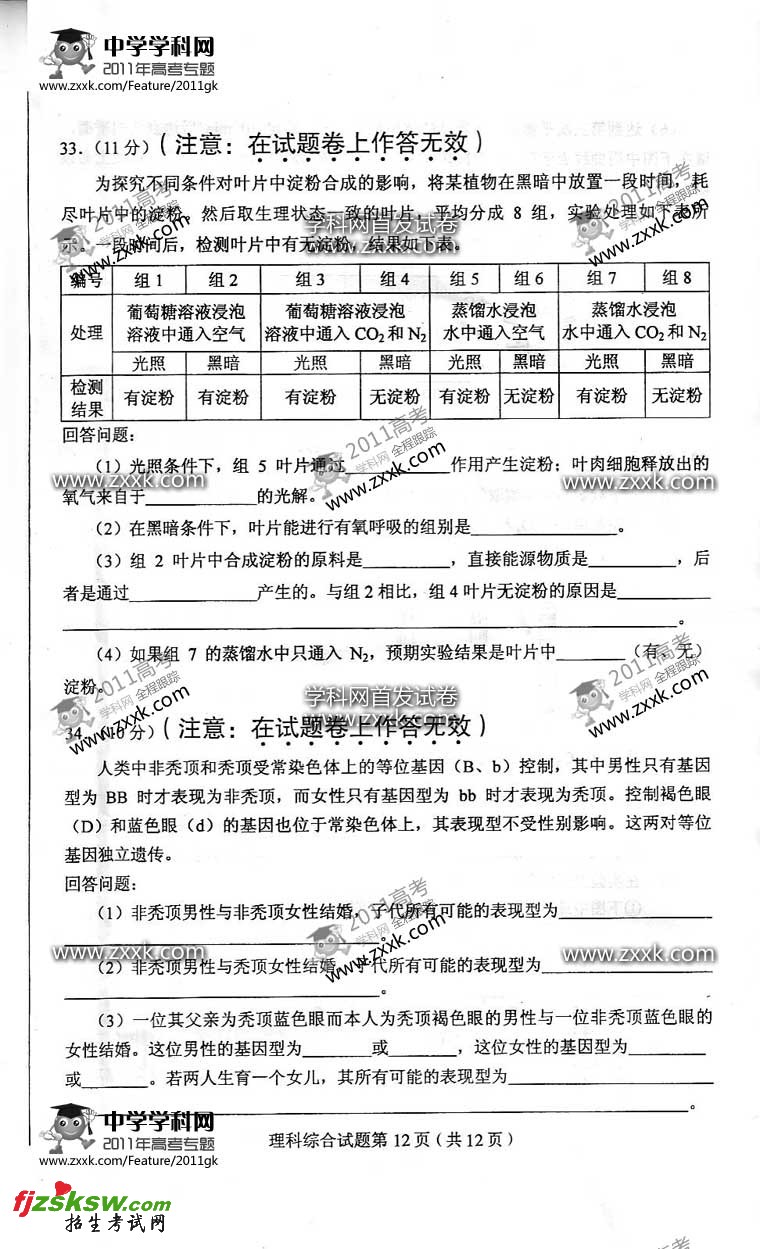 中学学科网
2011年高考专题
www.zxxk.com/Feature/2011gk
33．（11分）（注意：在试题卷上作答无效）
为探究不同条件对叶片中淀粉合成的影响，将某植物在黑暗中放置一段时间，耗
尽叶片中的淀粉。然后取生理状态一致的叶片，平均分成 8 组，实验处理如下表所
示。一段时间后，检测叶片中有无淀粉，结果如下表。
编号 组1 组2 组3 组4 组5 组6 组7 组8
处理 葡萄糖溶液浸泡 葡萄糖溶液浸泡 蒸馏水浸泡 蒸馏水浸泡
溶液中通入空气 溶液中通入 CO₂和 N₂ 水中通入空气 水中通入 CO₂和 N₂
光照 黑暗 光照 黑暗 光照 黑暗 光照 黑暗
检测结果 有淀粉 有淀粉 有淀粉 无淀粉 有淀粉 无淀粉 有淀粉 无淀粉
回答问题：
（1）光照条件下，组 5 叶片通过____作用产生淀粉；叶肉细胞释放出的
氧气来自于____的光解。
（2）在黑暗条件下，叶片能进行有氧呼吸的组别是____。
（3）组 2 叶片中合成淀粉的原料是____，直接能源物质是____，后
者是通过____产生的。与组2相比，组4叶片无淀粉的原因是____
____。
（4）如果组 7 的蒸馏水中只通入 N₂，预期实验结果是叶片中____（有、无）
淀粉。
34．（10分）（注意：在试题卷上作答无效）
人类中非秃顶和秃顶受常染色体上的等位基因（B、b）控制，其中男性只有基因
型为 BB 时才表现为非秃顶，而女性只有基因型为 bb 时才表现为秃顶。控制褐色眼
（D）和蓝色眼（d）的基因也位于常染色体上，其表现型不受性别影响。这两对等位
基因独立遗传。
回答问题：
（1）非秃顶男性与非秃顶女性结婚，子代所有可能的表现型为____
____。
（2）非秃顶男性与秃顶女性结婚，子代所有可能的表现型为____
____。
（3）一位其父亲为秃顶蓝色眼而本人为秃顶褐色眼的男性与一位非秃顶蓝色眼的
女性结婚。这位男性的基因型为____或____，这位女性的基因型为____
或____。若两人生育一个女儿，其所有可能的表现型为____
____。
理科综合试题第12页（共12页）
中学学科网
2011年高考专题
www.zxxk.com/Feature/2011gk
fjzsksw.com
招生考试网
学科网首发试卷
www.zxxk.com
2011高考
学科网 全程跟踪
www.zxxk.com